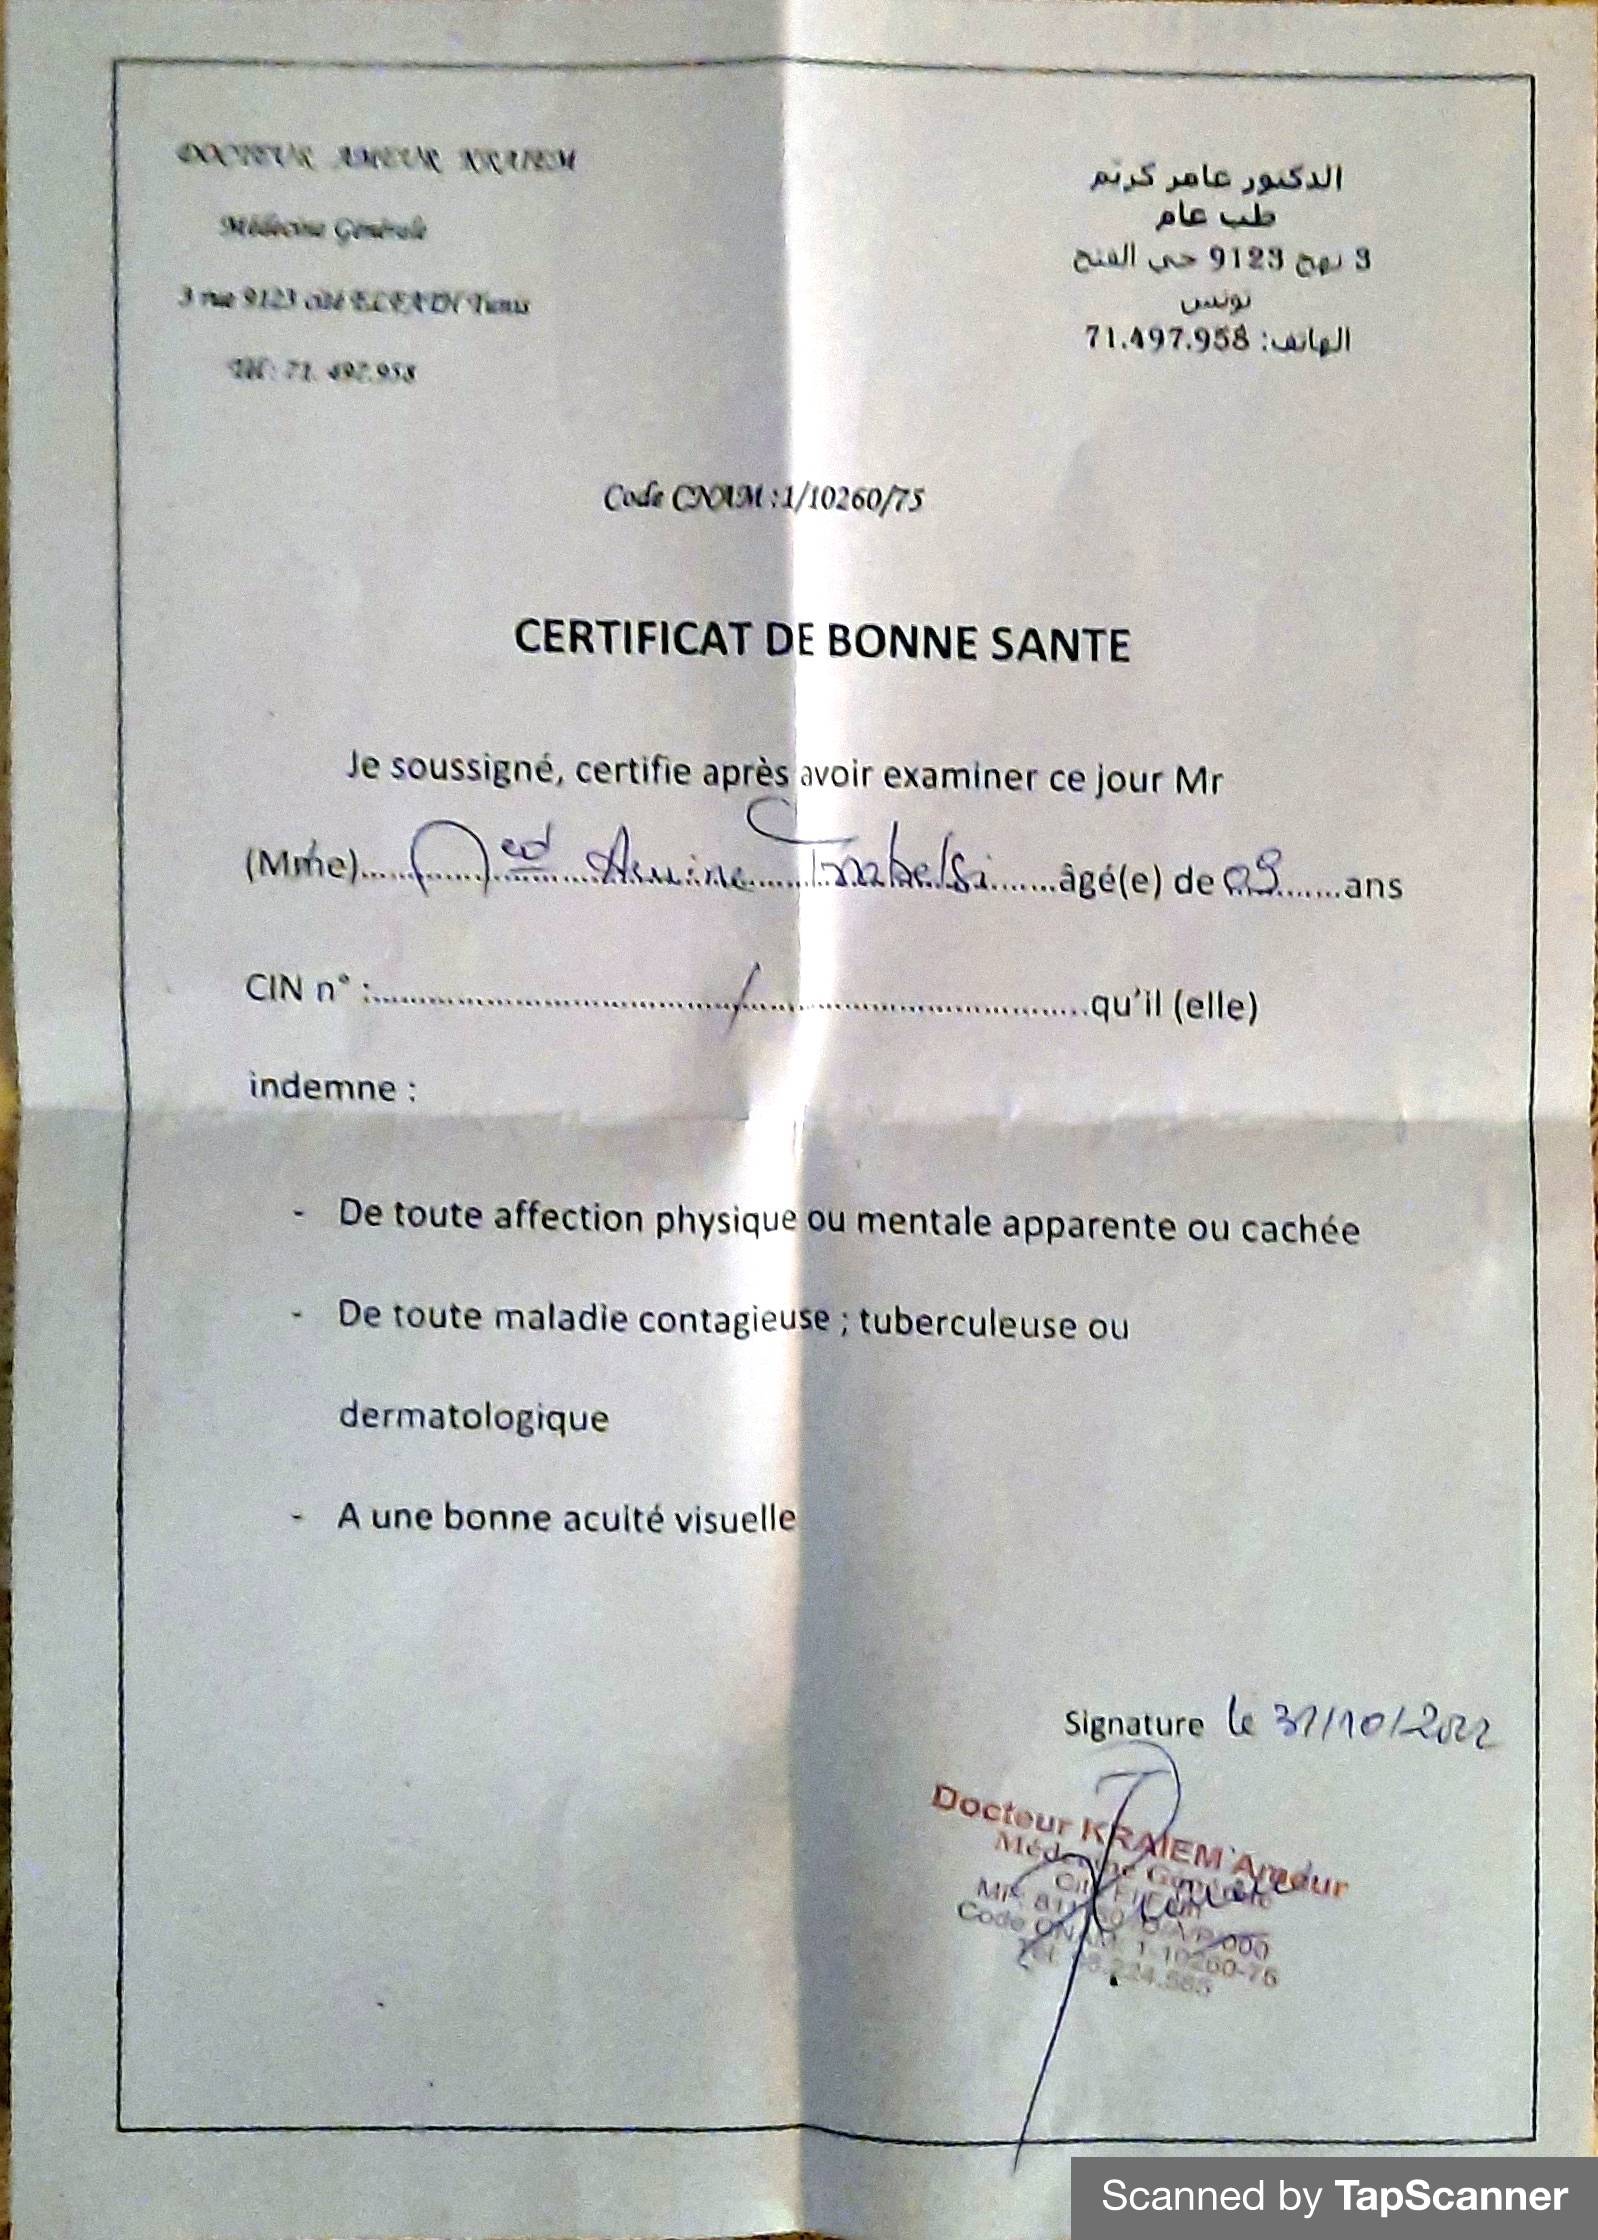 DOCTEUR AMEUR KRAIEM
Médecine Générale
3 rue 9123 cité ELFATH Tunis
Tél : 71. 497.958
الدكتور عامر كريم
طب عام
3 نهج 9123 حي الفتح
تونس
الهاتف: 71.497.958
Code CNAM :1/10260/75
CERTIFICAT DE BONNE SANTE
Je soussigné, certifie après avoir examiner ce jour Mr
(Mme)....Med Amine Trabelsi.......âgé(e) de 09........ans
CIN n° :..................../....................qu'il (elle)
indemne :
- De toute affection physique ou mentale apparente ou cachée
- De toute maladie contagieuse ; tuberculeuse ou
dermatologique
- A une bonne acuité visuelle
Signature le 31/10/2022
Docteur KRAIEM Ameur
Médecine Générale
Code CNAM: 1-10260-75
Scanned by TapScanner